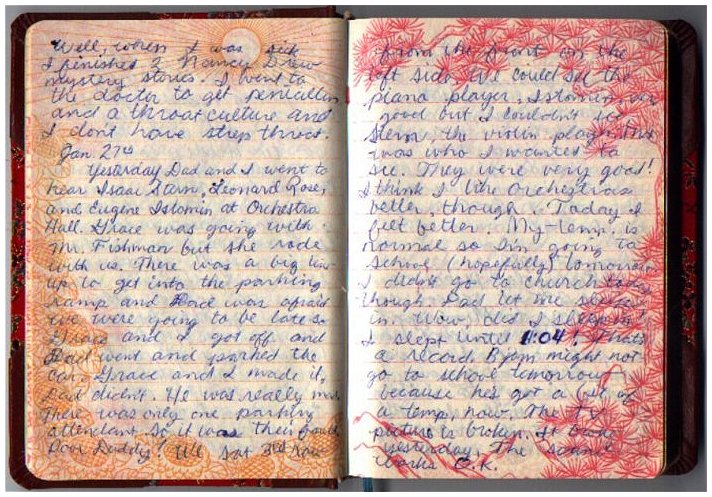 Well, when I was sick
I finished 2 Nancy Drew
mystery stories. I went to
the doctor to get penicillin
and a throat culture and
I dont have strep throat.
Jan 27th
Yesterday Dad and I went to
hear Isaac Starn, Leonard Rose,
and Eugene Istomin at Orchestra
Hall. Grace was going with
Mr. Fishman but she rode
with us. There was a big line
up to get into the parking
ramp and Dad was afraid
we were going to be late so
Grace and I got off and
Dad went and parked the
car. Grace and I made it,
Dad didn't. He was really mad
There was only one parking
attendant. So it was their fault
Poor Daddy! We sat 3rd row
from the front on the
left side. We could see the
piano player, Istomin, very
good but I couldn't see
Stern, the violin player. That
was who I wanted to
see. They were very good!
I think I like Orchestras
better, though. Today I
felt better. My temp. is
normal so I'm going to
school (hopefully) tomorrow
I didn't go to church today
though. Dad let me sleep
in. Wow, did I sleep in!
I slept until 11:04! Thats
a record. might not
go to school tomorrow
because he's got a bit of
a temp, now. The TV
picture is broken. It broke
yesterday. The sound
works O.K.